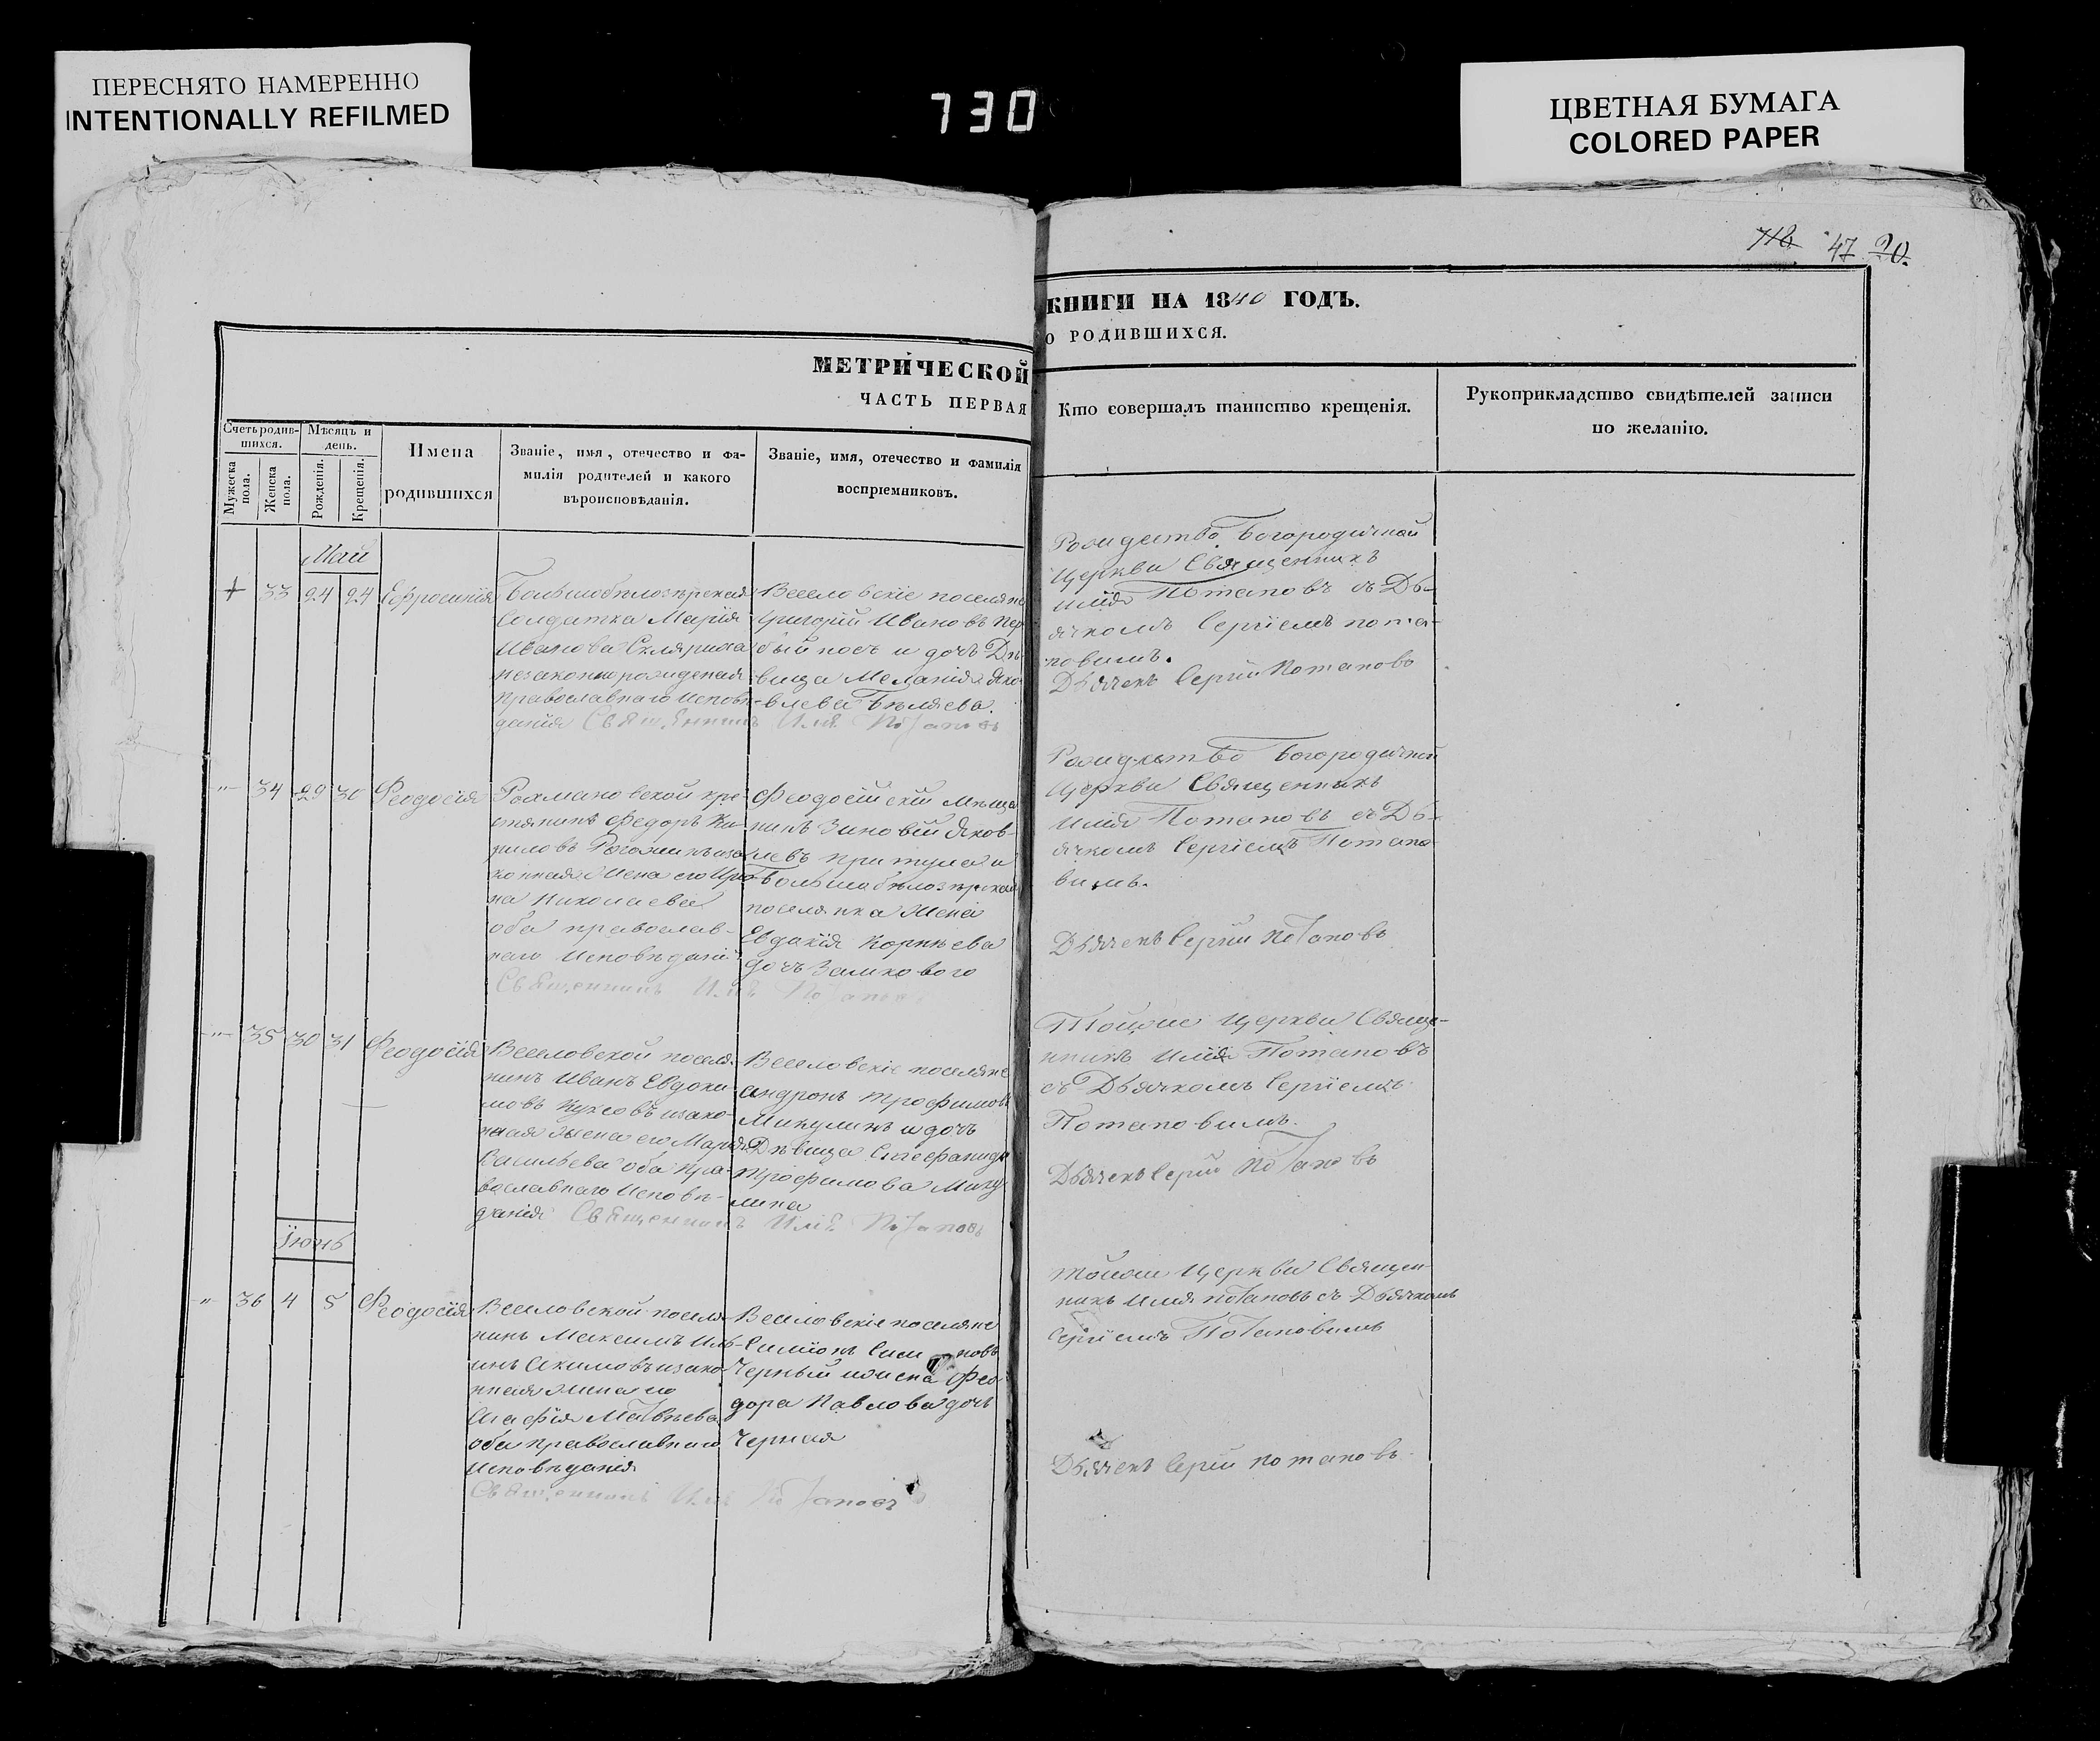 ПЕРЕСНЯТО НАМЕРЕННО
INTENTIONALLY REFILMED
730
ЦВЕТНАЯ БУМАГА
COLORED PAPER
47 20.
МЕТРИЧЕСКОЙ
ЧАСТЬ ПЕРВАЯ
КНИГИ НА 1840 ГОДЪ.
О РОДИВШИХСЯ.
Счетъ родив-
шихся.
Мужеска
пола.
Женска
пола.
Мѣсяцъ и
день.
Рожденія.
Крещенія.
Имена
родившихся
Званіе, имя, отечество и фа-
милія родителей и какого
вѣроисповѣданія.
Званіе, имя, отечество и фамилія
воспріемниковъ.
Кто совершалъ таинство крещенія.
Рукоприкладство свидѣтелей записи
по желанію.
Май
33 24 24 Ефросинія
Большобѣлозѣрская
Солдатка Марія
Иванова
незаконнорожденная
Православнаго Исповѣ-
данія Священникъ Илія Потаповъ
Веселовскіе поселяне
Григорій Ивановъ
и дочь Дѣ-
вица Меланія Яко-
влева Бѣляева.
Рождество Богородичной
Церкви Священникъ
Илія Потаповъ съ Дья-
ячкомъ Сергіемъ Пота-
повымъ.
Дьячекъ Сергій Потаповъ
34 29 30 Феодосія
Рохмановской кре-
стянинъ Федоръ
законная жена его Ири-
на Николаева
оба православ-
наго Исповѣданій
Священникъ Илія Потаповъ
Феодосійскій Мѣща-
нинъ Зиновій Яков-
левъ Притула и
Большобѣлозѣрская
поселянка жена
Евдокія Корнѣева
дочь
Рождество Богородичной
Церкви Священникъ
Илія Потаповъ съ Дь-
ячкомъ Сергіемъ Потапо-
вимъ.
Дьячекъ Сергій Потаповъ
35 30 31 Феодосія
Веселовской поселя-
нинъ Иванъ Евдоки-
мовъ
жена его Марія
Васильева оба Пра-
вославнаго Исповѣ-
данія Священникъ Илія Потаповъ
Веселовскіе поселяне
Андронъ Трофимовъ
Микулинъ и дочь
Дѣвица Стефанида
Трофимова Мику-
лина
Тойже Церкви Священ-
никъ Илія Потаповъ
съ Дьячкомъ Сергіемъ
Потаповимъ.
Дьячекъ Сергій Потаповъ
Іюнь
36 4 5 Феодосія
Веселовской поселя-
нинъ Максимъ Иль-
инъ Акимовъ изако-
нная жена его
Агафія Матвѣева
оба православнаго
Исповѣданія
Священникъ Илія Потаповъ
Веселовскіе поселяне
Черный и жена Фео-
дора Павлова дочь
Черная
Тойже Церкви Священ-
никъ Илия Потаповъ съ Дьячкомъ
Сергіемъ Потаповимъ
Дьячекъ Сергій Потаповъ